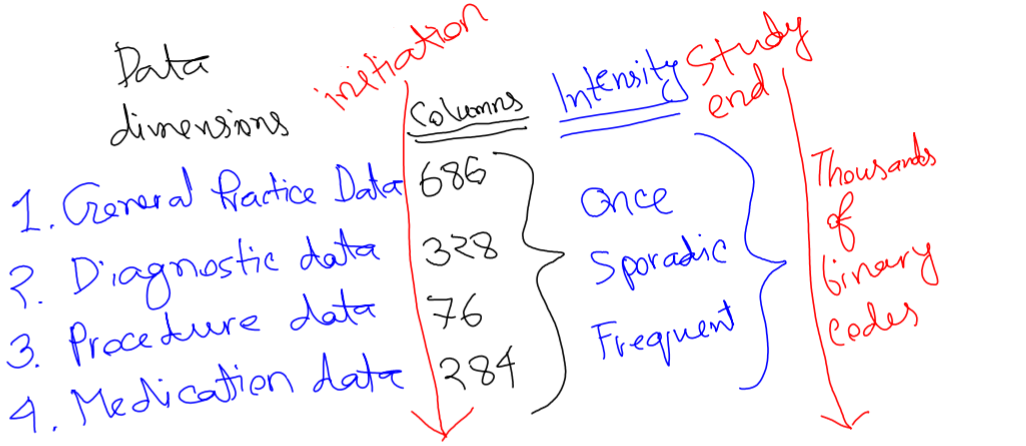 Data dimensions
initiation
Columns
Intensity
Study end
1. General Practice Data 686
2. Diagnostic data 328
3. Procedure data 76
4. Medication data 284
Once
Sporadic
Frequent
Thousands
of
binary
codes